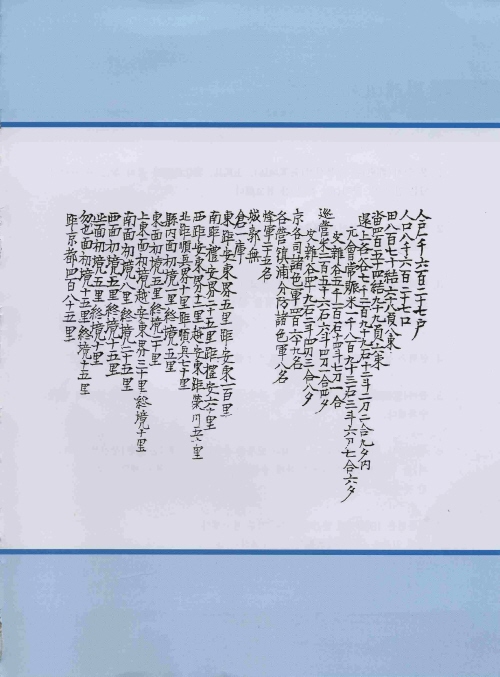 人戶二千六百二十七戶
人口八千六百三十七口
田八百七十結六十九負八束
畓四百五十四結九十九負六束
還上各谷七千三百九十九石十二斗二刀二合九夕內
元會常賑米二千八百九十三石三斗六刀七合六夕
文雜谷二千一百石十四斗七刀一合
巡營谷二百五十六石六斗四刀八合四夕
文雜谷四十九石三斗四刀三合八夕
京各司諸色軍四百六十九名
各營鎮浦分防諸色軍八名
烽軍二十五名
城郭無
倉一庫
東距安東界五里距安東一百里
南距禮安界二十五里距禮安六十里
西距安東界十二里越安東距榮川五十里
北距順興界十里距順興七十里
縣內面初境一里終境五里
東面初境五里終境二十里
上東面初境越安東界三十里終境十里
南面初境八里終境二十五里
西面初境五里終境十五里
北面初境五里終境十里
勿也面初境十五里終境十五里
距京都四百八十五里